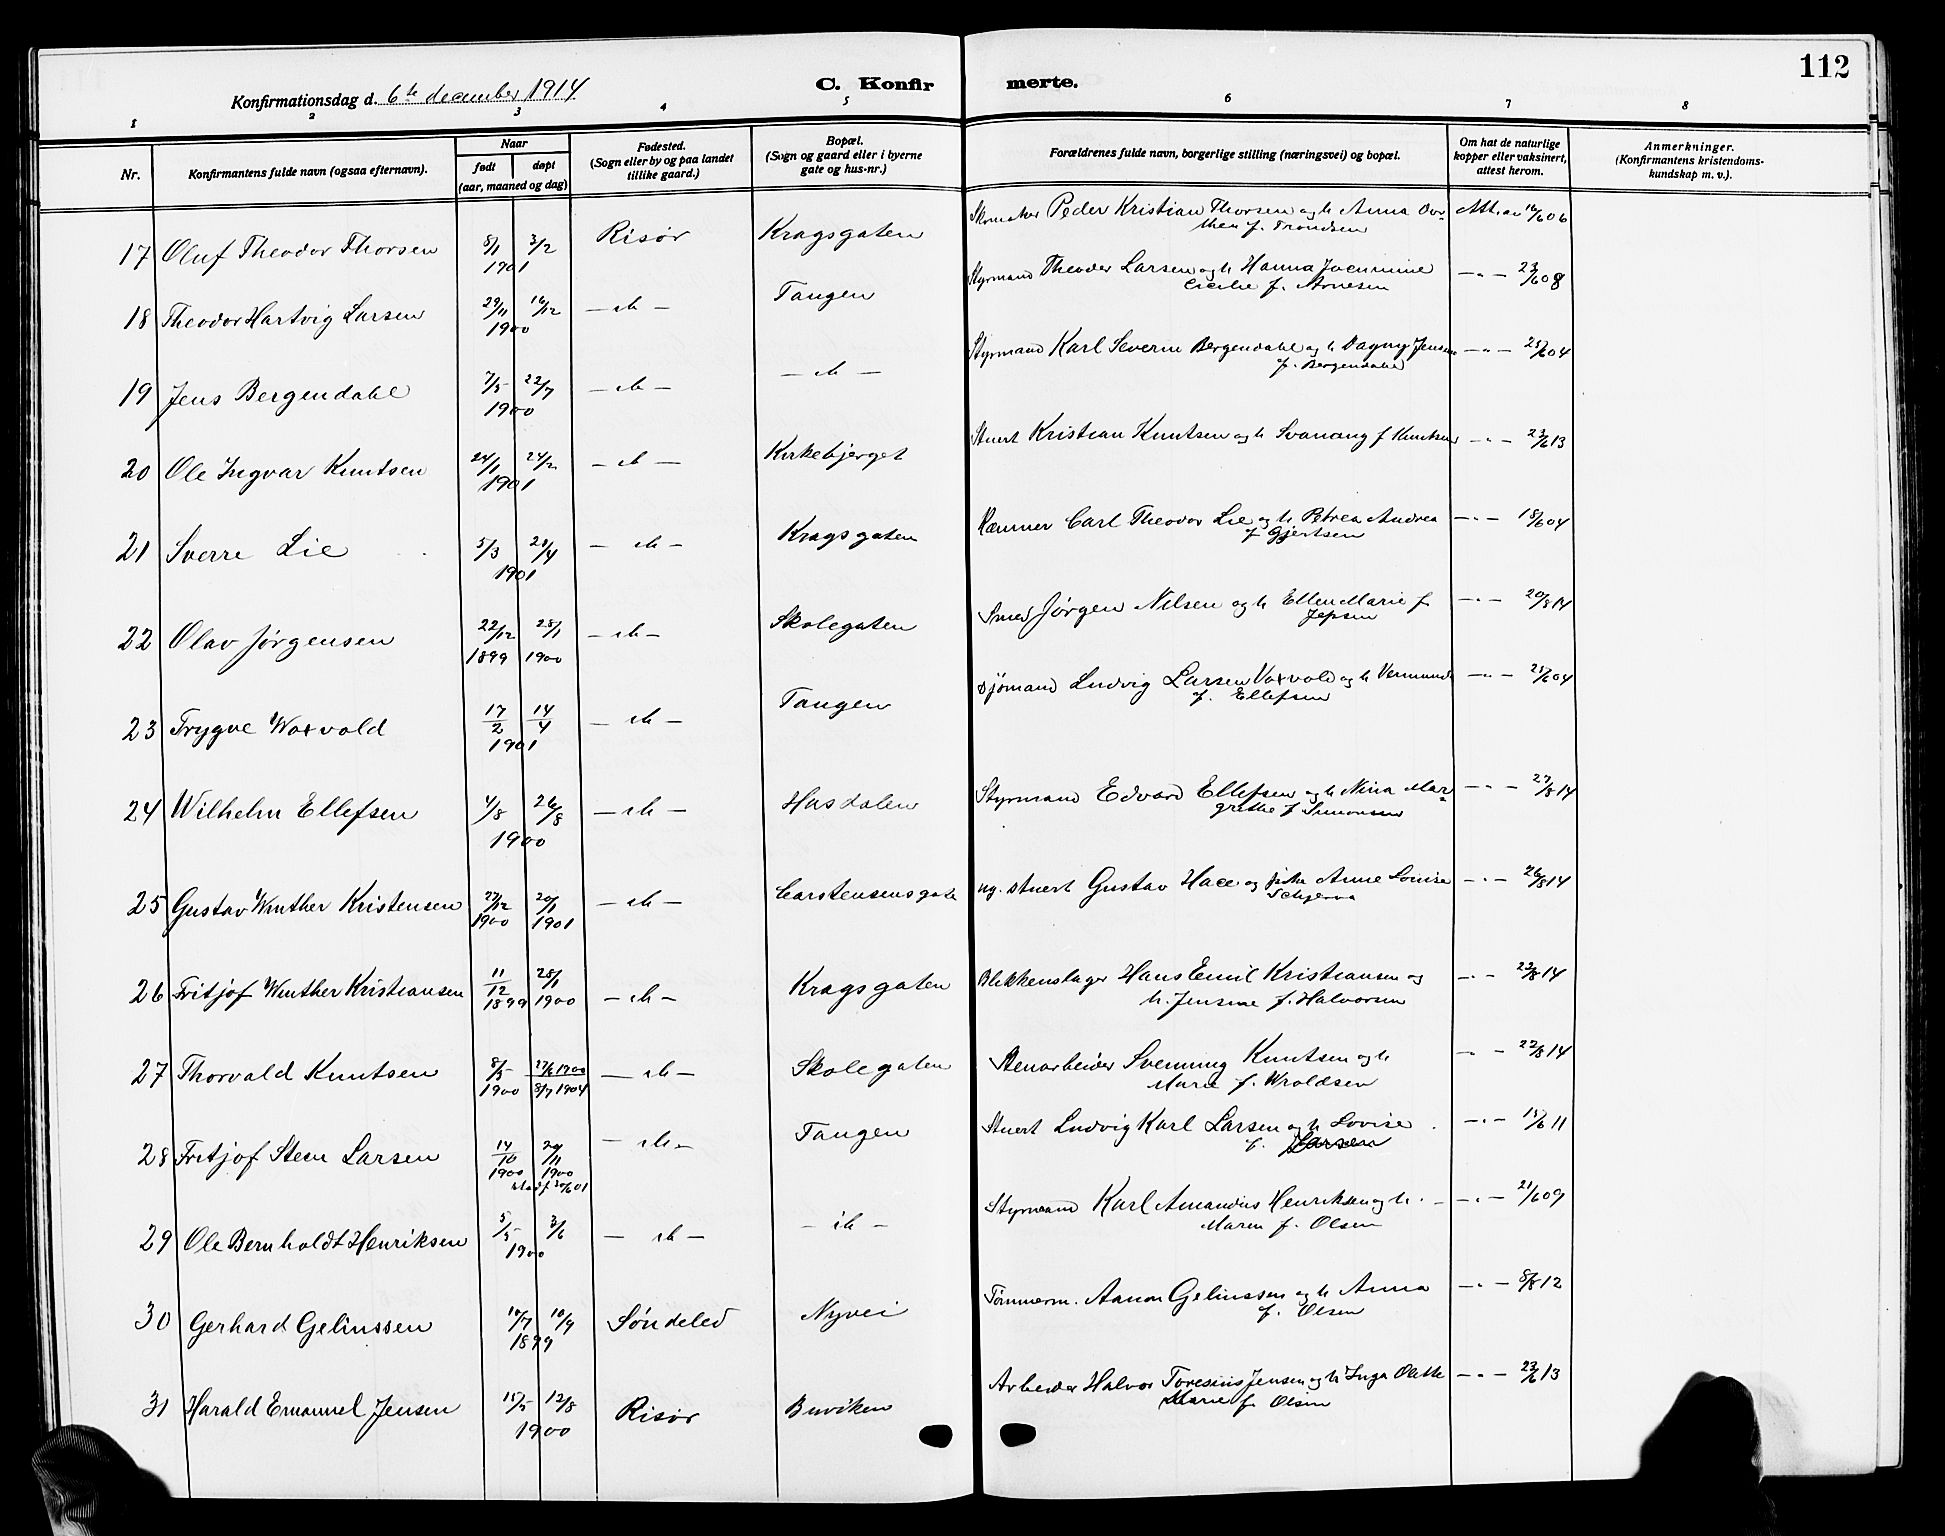 112
Konfirmationsdag d. 6te december 1914
C. Konfirmerte.
1 2 3 4 5 6 7 8
Nr.
Konfirmantens fulde navn (ogsaa efternavn).
Naar
født døpt
(aar, maaned og dag)
Fødested.
(Sogn eller by og paa landet
tillike gaard.)
Bopæl.
(Sogn og gaard eller i byerne
gate og hus-nr.)
Forældrenes fulde navn, borgerlige stilling (næringsvei) og bopæl.
Om hat de naturlige
kopper eller vaksinert,
attest herom.
Anmerkninger.
(Konfirmantens kristendoms-
kundskap m. v.).
17 Oluf Theodor Thorsen 8/1 3/2 Risør Kragsgaten Skomaker Peder Kristian Thorsen og h. Anna Dor= Att. av 16/6 06
1901 thea f. Trondsen
18 Theodor Hartvig Larsen 29/11 16/12 — do — Tangen Styrmand Theodor Larsen og h. Hanna Joenmine — " — 23/6 08
1900 Cicilie f. Arnesen
19 Jens Bergendahl 7/5 22/7 — do — — do — Styrmand Karl Severin Bergendahl og h. Dagny Jensine — " — 25/6 04
1900 f. Bergendahl
20 Ole Ingvar Knutsen 24/1 24/2 — do — Kirkebjerget Stuert Kristian Knutsen og h. Svanaug f. Knutsen — " — 23/6 13
1901
21 Sverre Lie 5/3 21/4 — do — Kragsgaten Kemner Carl Theodor Lie og h. Petrea Andrea — " — 18/6 04
1901 f. Gjertsen
22 Olav Jørgensen 22/12 28/1 — do — Skolegaten Smed Jørgen Nilsen og h. Ellen Marie f. — " — 20/8 14
1899 1900 Jepsen
23 Trygve Woxvold 17/2 14/4 — do — Tangen Sjømand Ludvig Larsen Voxvold og h. — " — 25/6 04
1901 f. Ellefsen
24 Wilhelm Ellefsen 4/8 26/8 — do — Hasdalen Styrmand Edvard Ellefsen og h. Nina Mar= — " — 27/8 14
1900 grethe f. Simonsen
25 Gustav Winther Kristensen 27/12 20/1 — do — Carstensensgate ug. stuert Gustav Hace og pike Anne Lovise — " — 26/8 14
1900 1901
26 Fritjof Winther Kristiansen 11/12 28/1 — do — Kragsgaten Blikkenslager Hans Emil Kristiansen og — " — 22/8 14
1899 1900 h. Jensine f. Halvorsen
27 Thorvald Knutsen 8/5 27/6 1900 — do — Skolegaten Stenarbeider Svenning Knutsen og h. — " — 22/8 14
1900 8/7 1904 Marie f. Wroldsen
28 Fritjof Steen Larsen 14/10 24/11 — do — Tangen Stuert Ludvig Karl Larsen og h. Lovise — " — 15/6 11
1900 1900 f. Larsen
stadf. 30/6 01
29 Ole Bernholdt Henriksen 5/5 3/6 — do — — do — Styrmand Karl Amandus Henriksen og h. — " — 21/6 09
1900 Maren f. Olsen
30 Gerhard Gelinssen 10/7 10/9 Søndeled Nyvei Tømmerm. Aanon Gelinssen og h. Anna — " — 8/8 12
1899 f. Olsen
31 Harald Emanuel Jensen 15/5 12/8 Risør Buviken Arbeider Halvor Toresius Jensen og h. Inga Olette — " — 23/6 13
1900 Marie f. Olsen